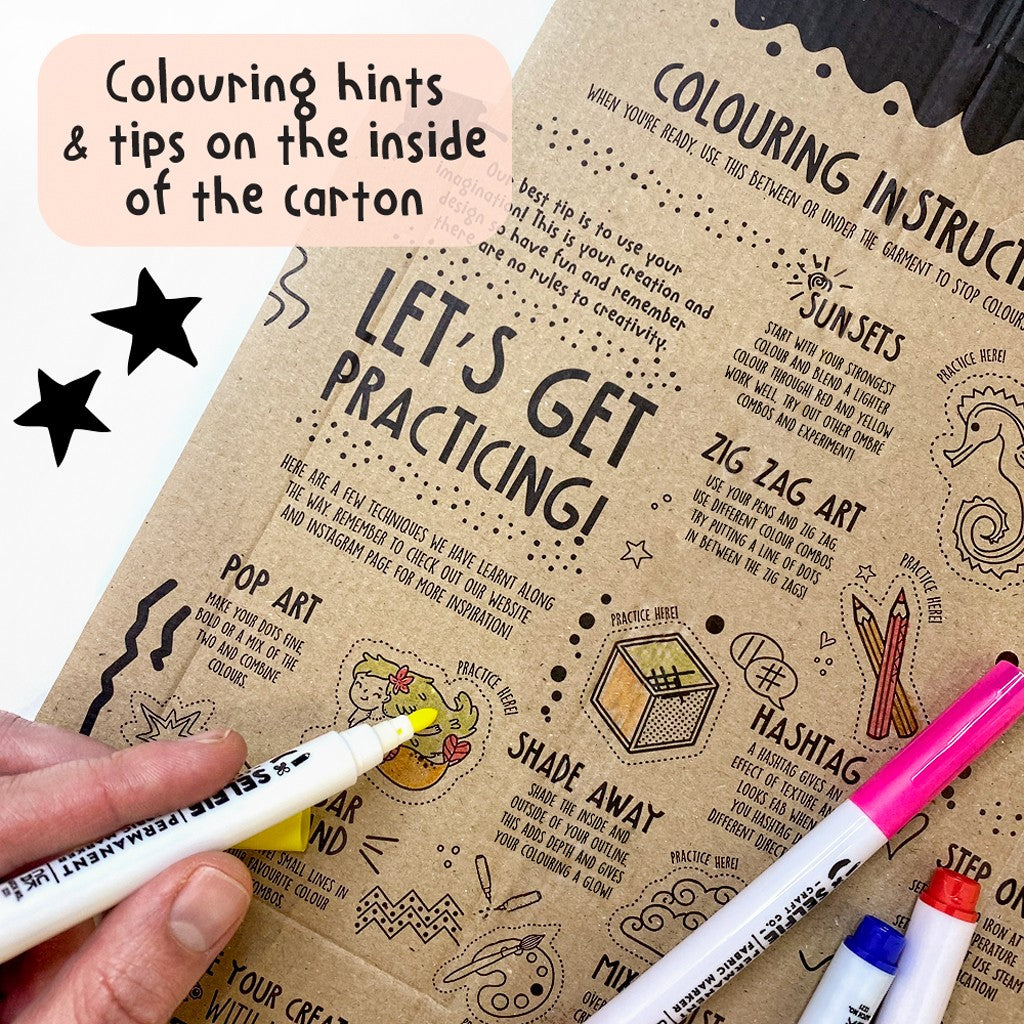 Colouring hints
& tips on the inside
of the carton
COLOURING
WHEN YOU'RE READY, USE THIS BETWEEN OR UNDER THE GARMENT TO STOP
best tip is to use your
This is your creation and
have fun and remember
are no rules to creativity.
LET'S GET
PRACTICING!
HERE ARE A FEW TECHNIQUES WE HAVE LEARNT ALONG
THE WAY. REMEMBER TO CHECK OUT OUR WEBSITE
AND INSTAGRAM PAGE FOR MORE INSPIRATION!
POP ART
MAKE YOUR DOTS FINE,
BOLD OR A MIX OF THE
TWO AND COMBINE
COLOURS.
PRACTICE HERE!
SUNSETS
START WITH YOUR STRONGEST
COLOUR AND BLEND A LIGHTER
COLOUR THROUGH! RED AND YELLOW
WORK WELL. TRY OUT OTHER OMBRE
COMBOS AND EXPERIMENT!
PRACTICE HERE!
ZIG ZAG ART
USE YOUR PENS AND ZIG ZAG.
USE DIFFERENT COLOUR COMBOS.
TRY PUTTING A LINE OF DOTS
IN BETWEEN THE ZIG ZAGS!
PRACTICE HERE!
PRACTICE HERE!
#
HASHTAG
A HASHTAG GIVES AN
EFFECT OF TEXTURE
LOOKS FAB WHEN
YOU HASHTAG
DIFFERENT
SHADE AWAY
SHADE THE INSIDE AND
OUTSIDE OF YOUR OUTLINE.
THIS ADDS DEPTH AND GIVES
YOUR COLOURING A GLOW!
PRACTICE HERE!
SMALL LINES IN
FAVOURITE COLOUR
COMBOS.
SELFIE PERMANENT
SELFIE
CRAFT CO.
PERMANENT
FABRIC MARKER
STEP
IRON AT
USE STEAM
YOUR
WITH